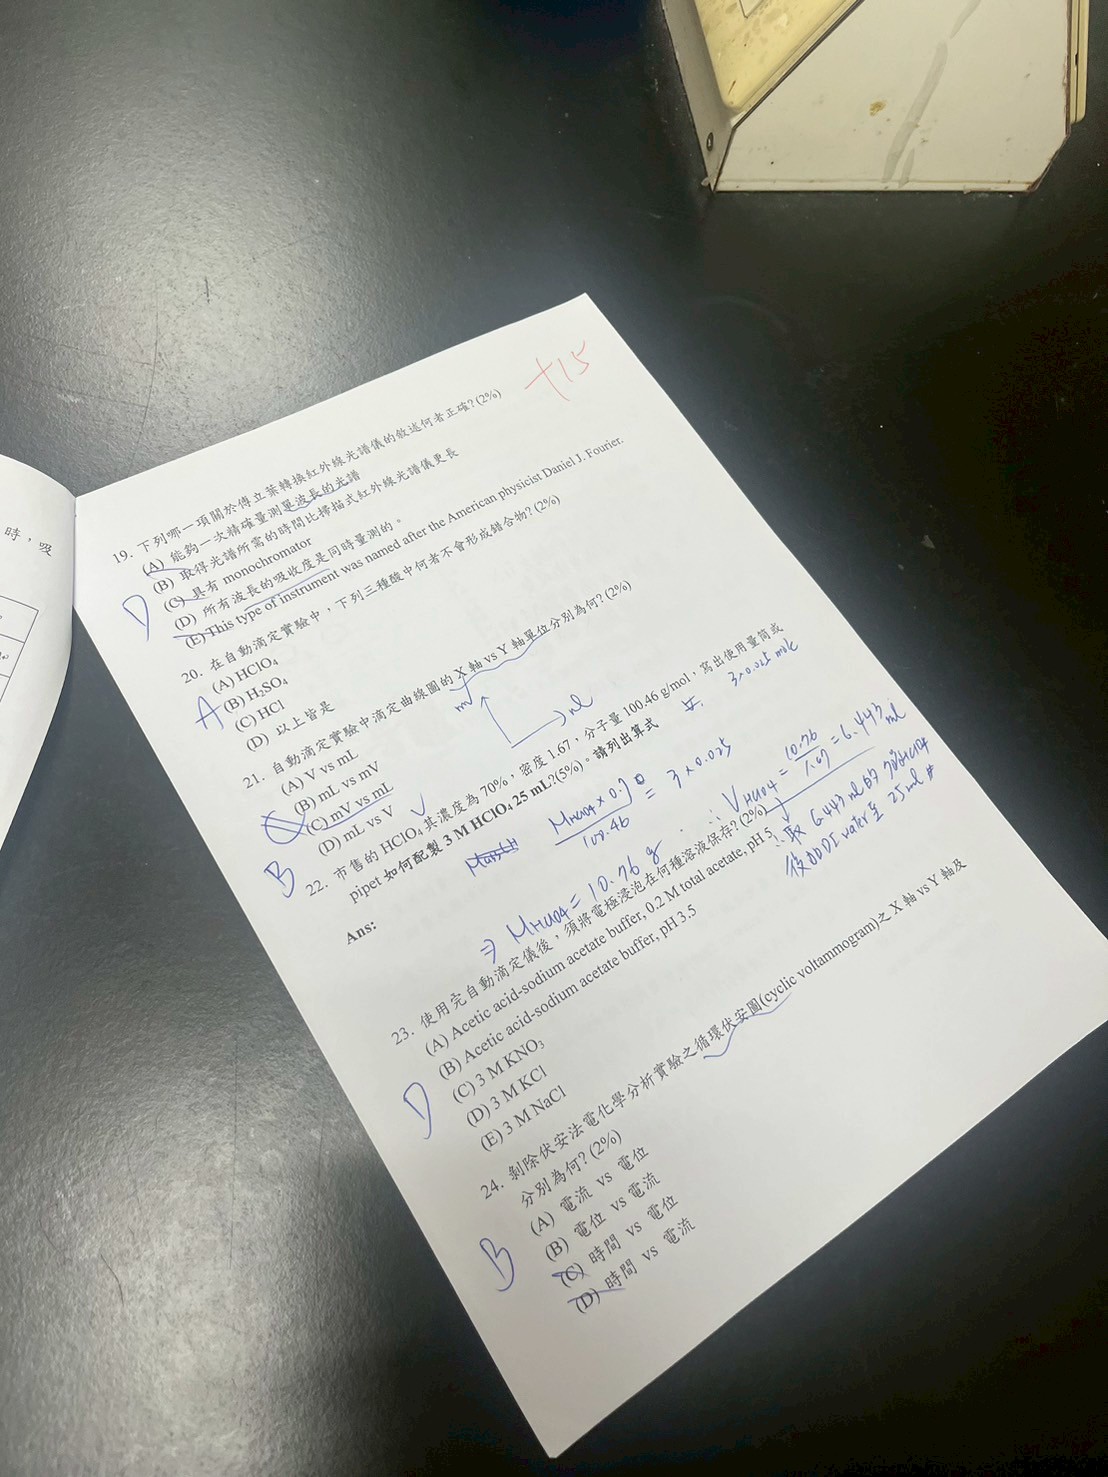 +15
19. 下列哪一項關於傅立葉轉換紅外線光譜儀的敘述何者正確? (2%)
(A) 能夠一次精確量測單波長的光譜
(B) 取得光譜所需的時間比掃描式紅外線光譜儀更長
(C) 具有 monochromator
(D) 所有波長的吸收度是同時量測的。
(E) This type of instrument was named after the American physicist Daniel J. Fourier.
D
20. 在自動滴定實驗中，下列三種酸中何者不會形成錯合物? (2%)
(A) HClO₄
(B) H₂SO₄
(C) HCl
(D) 以上皆是
A
21. 自動滴定實驗中滴定曲線圖的 X 軸 vs Y 軸單位分別為何? (2%)
(A) V vs mL
(B) mL vs mV
(C) mV vs mL
(D) mL vs V
B
ml
22. 市售的 HClO₄ 其濃度為 70%，密度 1.67，分子量 100.46 g/mol，寫出使用量筒或
pipet 如何配製 3 M HClO₄ 25 mL?(5%)。請列出算式
3×0.025 mole
Ans:
MHClO4 × 0.7 / 100.46 = 3 × 0.025
⇒ MHClO4 = 10.76 g
∴ VHClO4 = 10.76 / 1.67 = 6.443 ml
∴ 取 6.443 ml 的 70% HClO4
後加DI water至 25 ml #
23. 使用完自動滴定儀後，須將電極浸泡在何種溶液保存? (2%)
(A) Acetic acid-sodium acetate buffer, 0.2 M total acetate, pH 5
(B) Acetic acid-sodium acetate buffer, pH 3.5
(C) 3 M KNO₃
(D) 3 M KCl
(E) 3 M NaCl
D
24. 剝除伏安法電化學分析實驗之循環伏安圖(cyclic voltammogram)之 X 軸 vs Y 軸及
分別為何? (2%)
(A) 電流 vs 電位
(B) 電位 vs 電流
(C) 時間 vs 電位
(D) 時間 vs 電流
B
時，吸